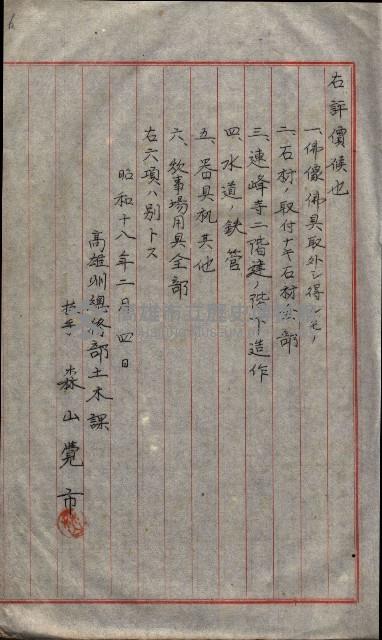 右評價候也
一、佛像、佛具取外シ得ルモノ
二、石材ノ取付ナキ石材全部
三、連峰寺二階建ノ階下造作
四、水道ノ鉄管
五、器具机其他
六、炊事場用具全部
右六項ハ別トス
昭和十八年二月 四日
高雄州總務部土木課
技手 森山覺市